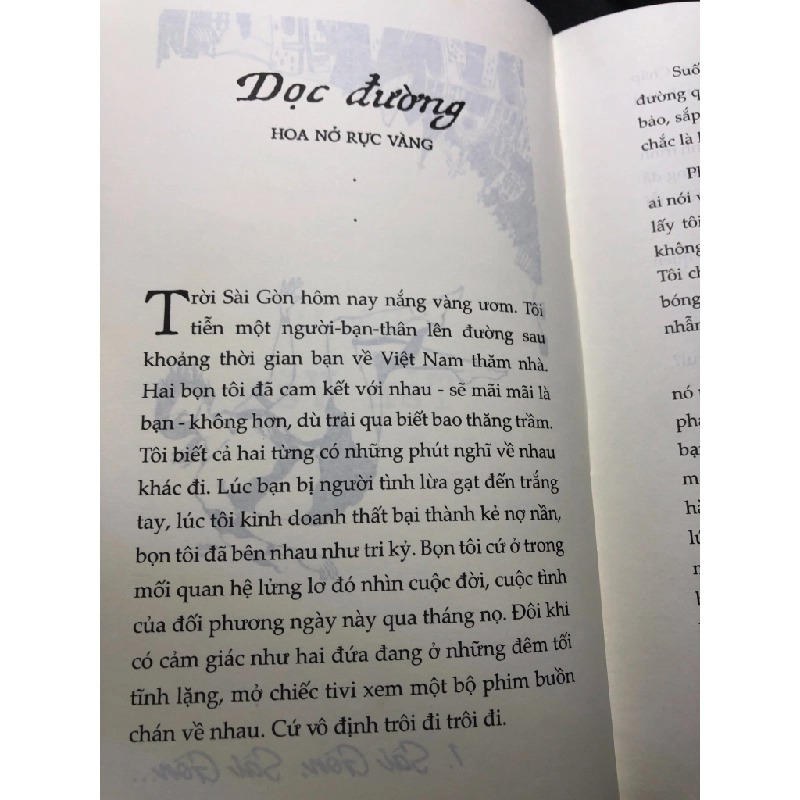 Dọc đường
HOA NỞ RỰC VÀNG
Trời Sài Gòn hôm nay nắng vàng ươm. Tôi
tiễn một người-bạn-thân lên đường sau
khoảng thời gian bạn về Việt Nam thăm nhà.
Hai bọn tôi đã cam kết với nhau - sẽ mãi mãi là
bạn - không hơn, dù trải qua biết bao thăng trầm.
Tôi biết cả hai từng có những phút nghĩ về nhau
khác đi. Lúc bạn bị người tình lừa gạt đến trắng
tay, lúc tôi kinh doanh thất bại thành kẻ nợ nần,
bọn tôi đã bên nhau như tri kỷ. Bọn tôi cứ ở trong
mối quan hệ lửng lơ đó nhìn cuộc đời, cuộc tình
của đối phương ngày này qua tháng nọ. Đôi khi
có cảm giác như hai đứa đang ở những đêm tối
tĩnh lặng, mở chiếc tivi xem một bộ phim buồn
chán về nhau. Cứ vô định trôi đi trôi đi.
Suố
đường q
bảo, sắp
chắc là
ai nói
lấy tô
không
Tôi ch
bóng
nhẫn
nó
phá
bạn